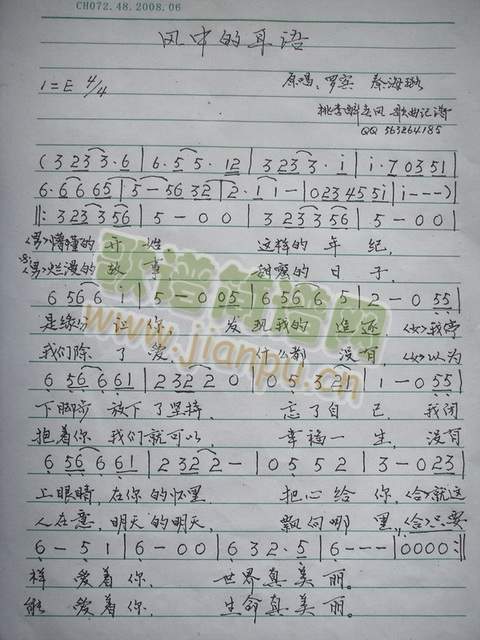 CH072.48.2008.06
风中的耳语
1=E 4/4
原唱: 罗宾 秦海璐
桃李醉春风 歌曲记谱
QQ 563264185
(3 2 3 3·6 | 6·5 5·12 | 3 2 3 3·i | i·7 0351 |
6·6 6 65 | 5-56 32 | 2·1 1- | 0234 55i | i---)
‖: 3 2 3 3 56 | 5-00 | 3 2 3 3 56 | 5-00 |
<男>懵懂的 这样的 年纪,
<男>烂漫的 故事 甜蜜的 日子,
6 56 6 i | 5-0 05 | 6 56 6 5 | 2-0 55 |
是缘分 让你 发现我的 追逐 <女>我停
我们除 了 爱 什么都 没有, <女>以为
6 56 6 61 | 2 32 2 0 | 05 3 21 | 1-0 55 |
下脚步 放下了坚持, 忘了自 己, 我闭
抱着你 我们就可以, 幸福一 生, 没有
6 56 6 61 | 2 32 2- | 0 5 5 2 | 3-0 23 |
上眼睛, 在你的怀里, 把心给 你, <合>就这
人在意, 明天的明天, 飘向哪 里, <合>只要
6-51 | 6-00 | 6 3 2·5 | 6--- | 0000 :‖
样 爱着你, 世界真美 丽。
能 爱着你, 生命真美 丽。
歌谱简谱网
www.jianpu.cn